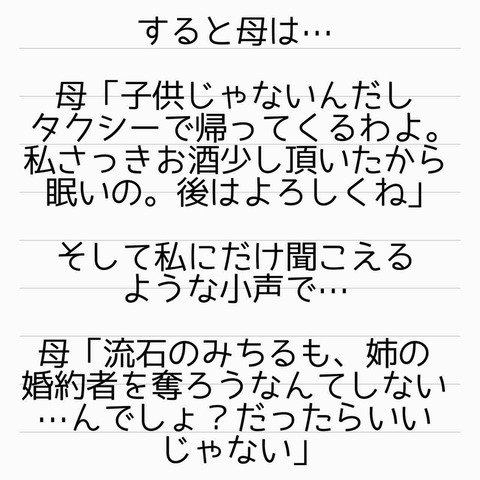 すると母は…
母「子供じゃないんだし
タクシーで帰ってくるわよ。
私さっきお酒少し頂いたから
眠いの。後はよろしくね」
そして私にだけ聞こえる
ような小声で…
母「流石のみちるも、姉の
婚約者を奪ろうなんてしない
…んでしょ？だったらいい
じゃない」